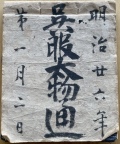 明治廿六年
呉服太物通
第一月二日